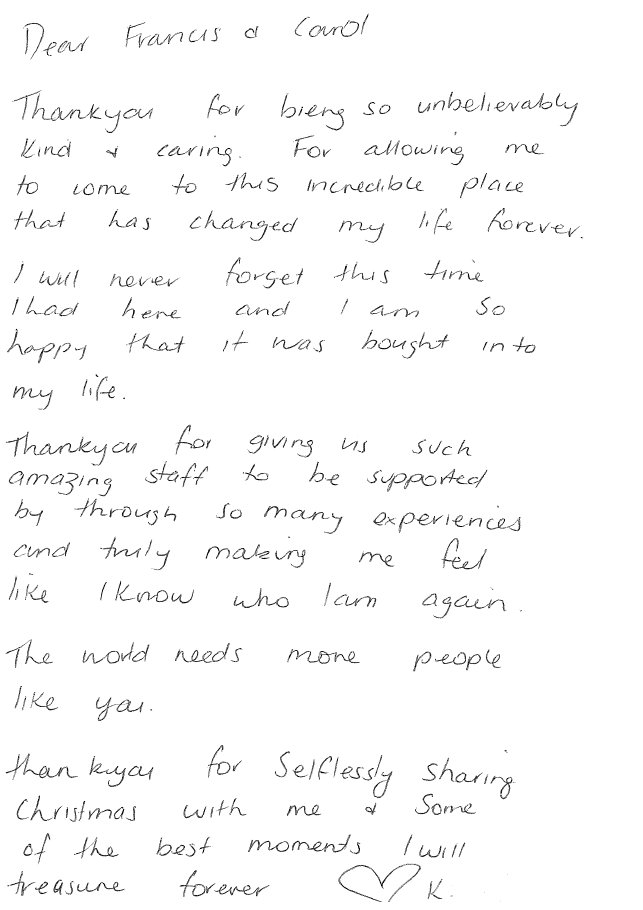 Dear Francis & Carol
Thankyou for bieng so unbelievably
kind & caring. For allowing me
to come to this incredible place
that has changed my life forever.
I will never forget this time
I had here and I am so
happy that it was bought into
my life.
Thankyou for giving us such
amazing staff to be supported
by through so many experiences
and truly making me feel
like I know who I am again.
The world needs more people
like you.
thankyou for selflessly sharing
Christmas with me & some
of the best moments I will
treasure forever ♡ K.